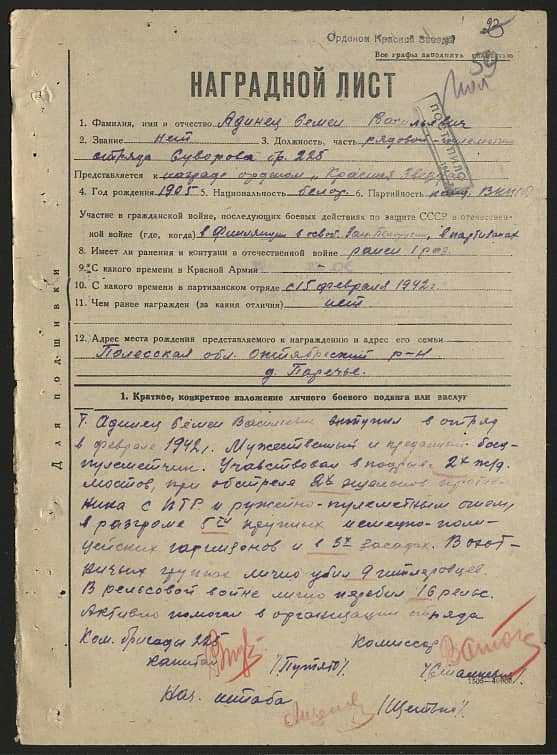 Орденом Красной Звезды
Все графы заполнять полностью
НАГРАДНОЙ ЛИСТ
1. Фамилия, имя и отчество Адинец Семен Васильевич
2. Звание нет 3. Должность, часть рядовой
отряда Суворова бр. 225
ПОСТУПИЛО
Представляется к награде орденом „Красная Звезда"
4. Год рождения 1905 5. Национальность белор. 6. Партийность канд. ВКП(б)
Участие в гражданской войне, последующих боевых действиях по защите СССР и отечествен-
ной войне (где, когда) в Финляндии в освоб. Зап. в партизанах
8. Имеет ли ранения и контузии в отечественной войне ранен 1 раз.
9. С какого времени в Красной Армии
10. С какого времени в партизанском отряде с 15 февраля 1942 г.
11. Чем ранее награжден (за какие отличия) нет
12. Адрес места рождения представляемого к награждению и адрес его семьи
Полесская обл. Октябрьский р-н
д. Паречье.
Для подшивки
1. Краткое, конкретное изложение личного боевого подвига или заслуг
Т. Адинец Семен Васильевич вступил в отряд
в феврале 1942 г. Мужественный и преданный боец-
пулеметчик. Учавствовал в подрыве 2х ж/д.
мостов, при обстреле 2х эшелонов против-
ника с ПТР и ружейно-пулеметным огнем,
в разгроме 5ти крупных немецко-поли-
цейских гарнизонов и в 3х засадах. В охот-
ничьих группах лично убил 9 гитлеровцев
В рельсовой войне лично перебил 16 рельс.
Активно помогал в организации отряда
Ком. бригады 225 Комиссар
капитан /Путято/
Нач. штаба